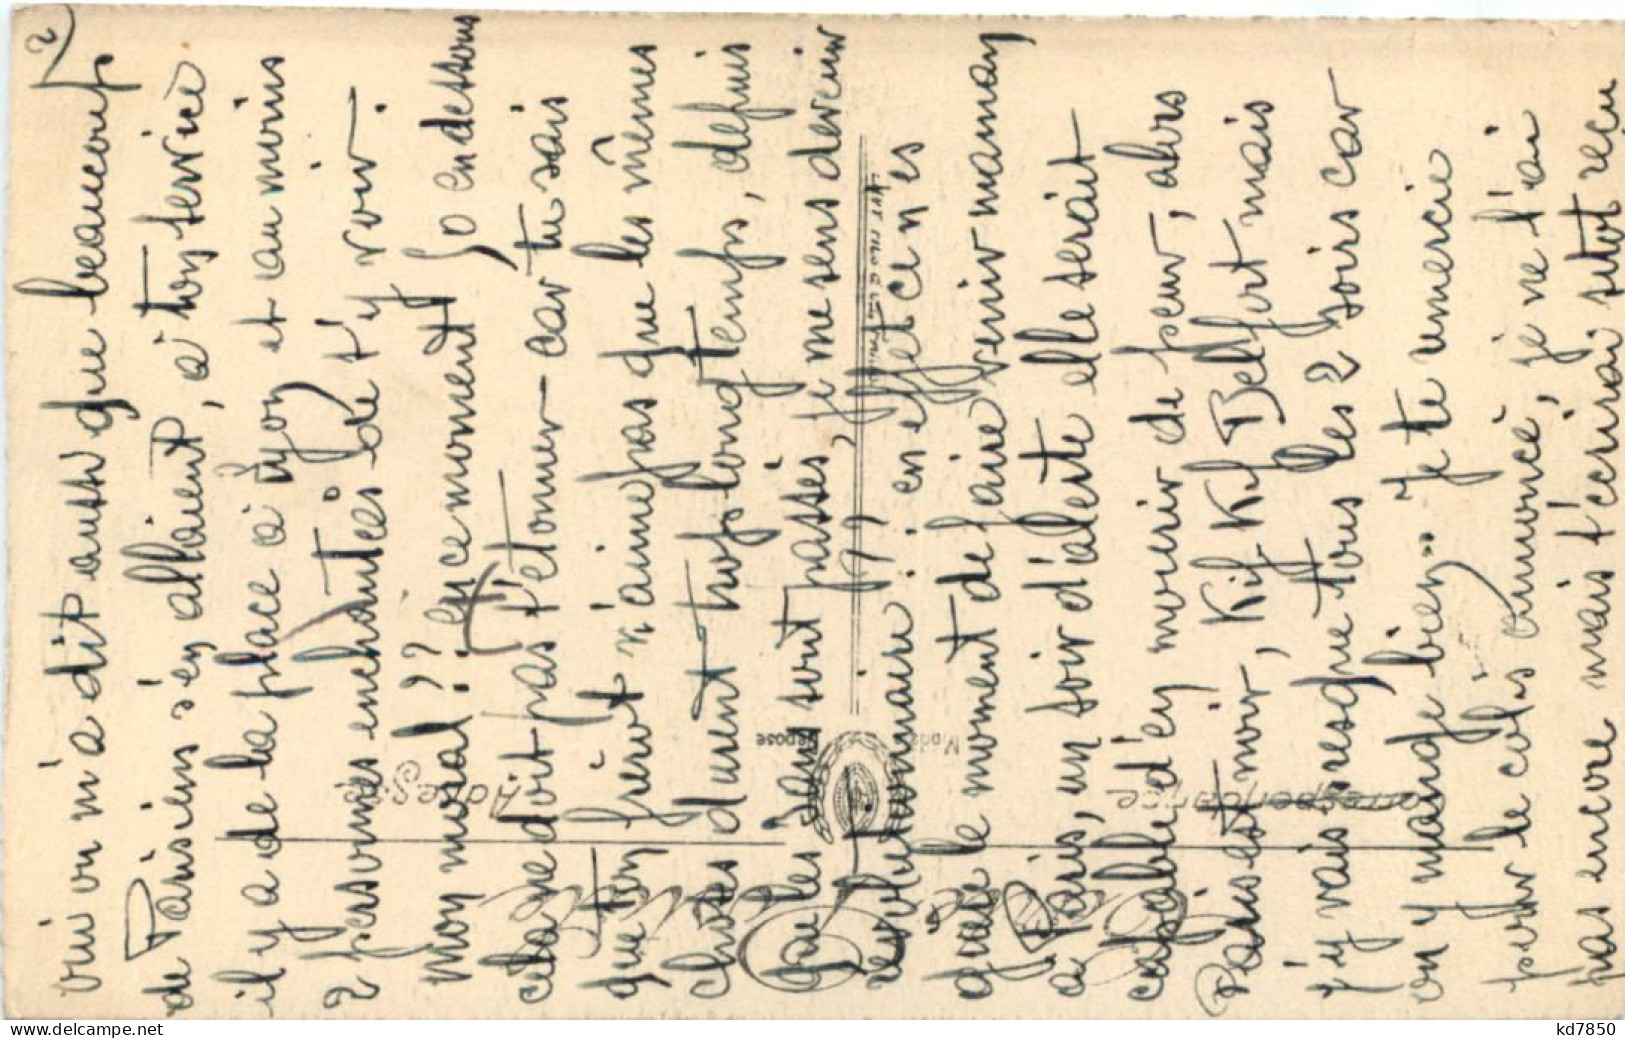 2)
oui on m'a dit aussi que beaucoup
de Parisiens s'en allaient, à ton service
il y a de la place à Lyon et au moins
2 personnes enchantées de t'y voir.
mon moral ?? en ce moment 50 en dessous
cela ne doit pas t'étonner car tu sais
que ton frérot n'aime pas que les mêmes
choses durent trop longtemps, depuis
que les jours sont passés, je me sens devenir
révolutionnaire !?? en effet ce n'es
guère le moment de faire venir maman
à Paris, un soir d'alerte elle serait
capable d'en mourir de peur, alors
Paris est noir, Kif-Kif Belfort mais
j'y vais presque tous les 2 soirs car
on y mange bien.. Je te remercie
pour le colis annoncé, je ne l'ai
pas encore mais t'écrirai sitôt reçu
Carte Postale
Correspondance
Adresse
Modèle
Déposé